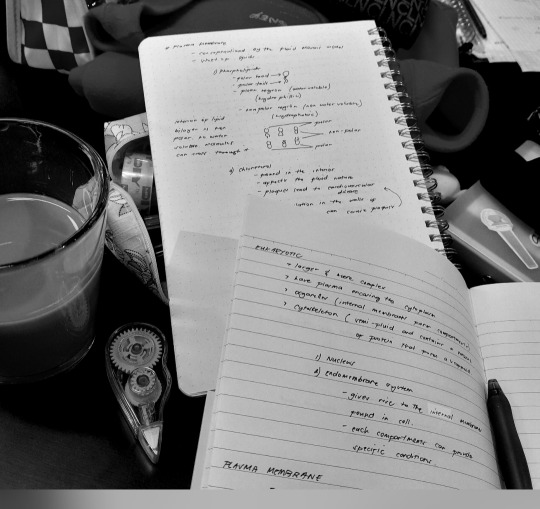 * Plasma Membrane
- conceptualized by the fluid mosaic model
- made up lipids
1) Phospholipids
- polar head →
- polar tails →
- polar region (water soluble)
(hydrophilic)
- non polar region (non water soluble)
(hydrophobic)
interior of lipid
bilayer is non
polar. No water
soluble molecules
can move through
polar
non-polar
polar
2) Cholesterol
- found in the interior
- affects the fluid nature
- plaques lead to cardiovascular
disease
in the walls of
can cause plaques
EUKARYOTIC
> larger & more complex
> have plasma encasing the cytoplasm
> organelles (internal membranes form compartments)
> cytoskeleton (semi-fluid and contains a
of protein that forms a
1) Nuclear
2) endomembrane system
- gives rise to the internal membrane
found in cell.
- each compartments can provide
specific conditions.
PLASMA MEMBRANE